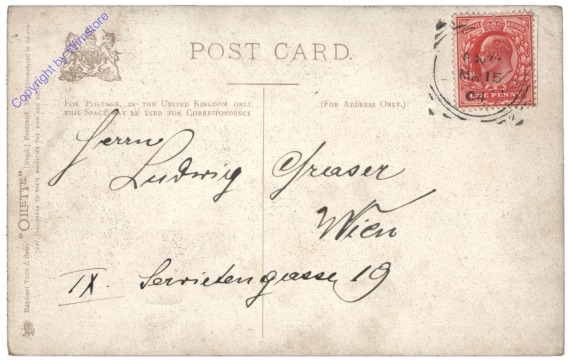 Copyright by Winstore
POST CARD.
ONE PENNY
FOR POSTAGE IN THE UNITED KINGDOM ONLY
THIS SPACE MAY BE USED FOR CORRESPONDENCE
(FOR ADDRESS ONLY.)
Herrn
Ludwig Greaser
Wien
IX. Servietengasse 19
Raphael Tuck & Sons' "OILETTE" [Regd.] Postcard